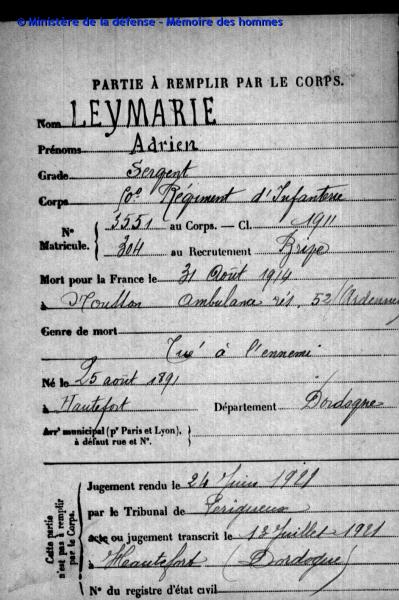 © Ministère de la défense - Mémoire des hommes
PARTIE À REMPLIR PAR LE CORPS.
Nom LEYMARIE
Prénoms Adrien
Grade Sergent
Corps 50e Régiment d'Infanterie
N° Matricule. { 3551 au Corps. — Cl. 1911
304 au Recrutement
Mort pour la France le 31 Août 1914
à Ambulance 52 (Ardennes
Genre de mort
Tué à l'ennemi
Né le 25 août 1891
à Hautefort Département Dordogne
Arrt municipal (pr Paris et Lyon),
à défaut rue et N°.
Cette partie n'est pas à remplir par le Corps.
Jugement rendu le 24 Juin 1921
par le Tribunal de Périgueux
acte ou jugement transcrit le 13 Juillet 1921
à Hautefort (Dordogne)
N° du registre d'état civil